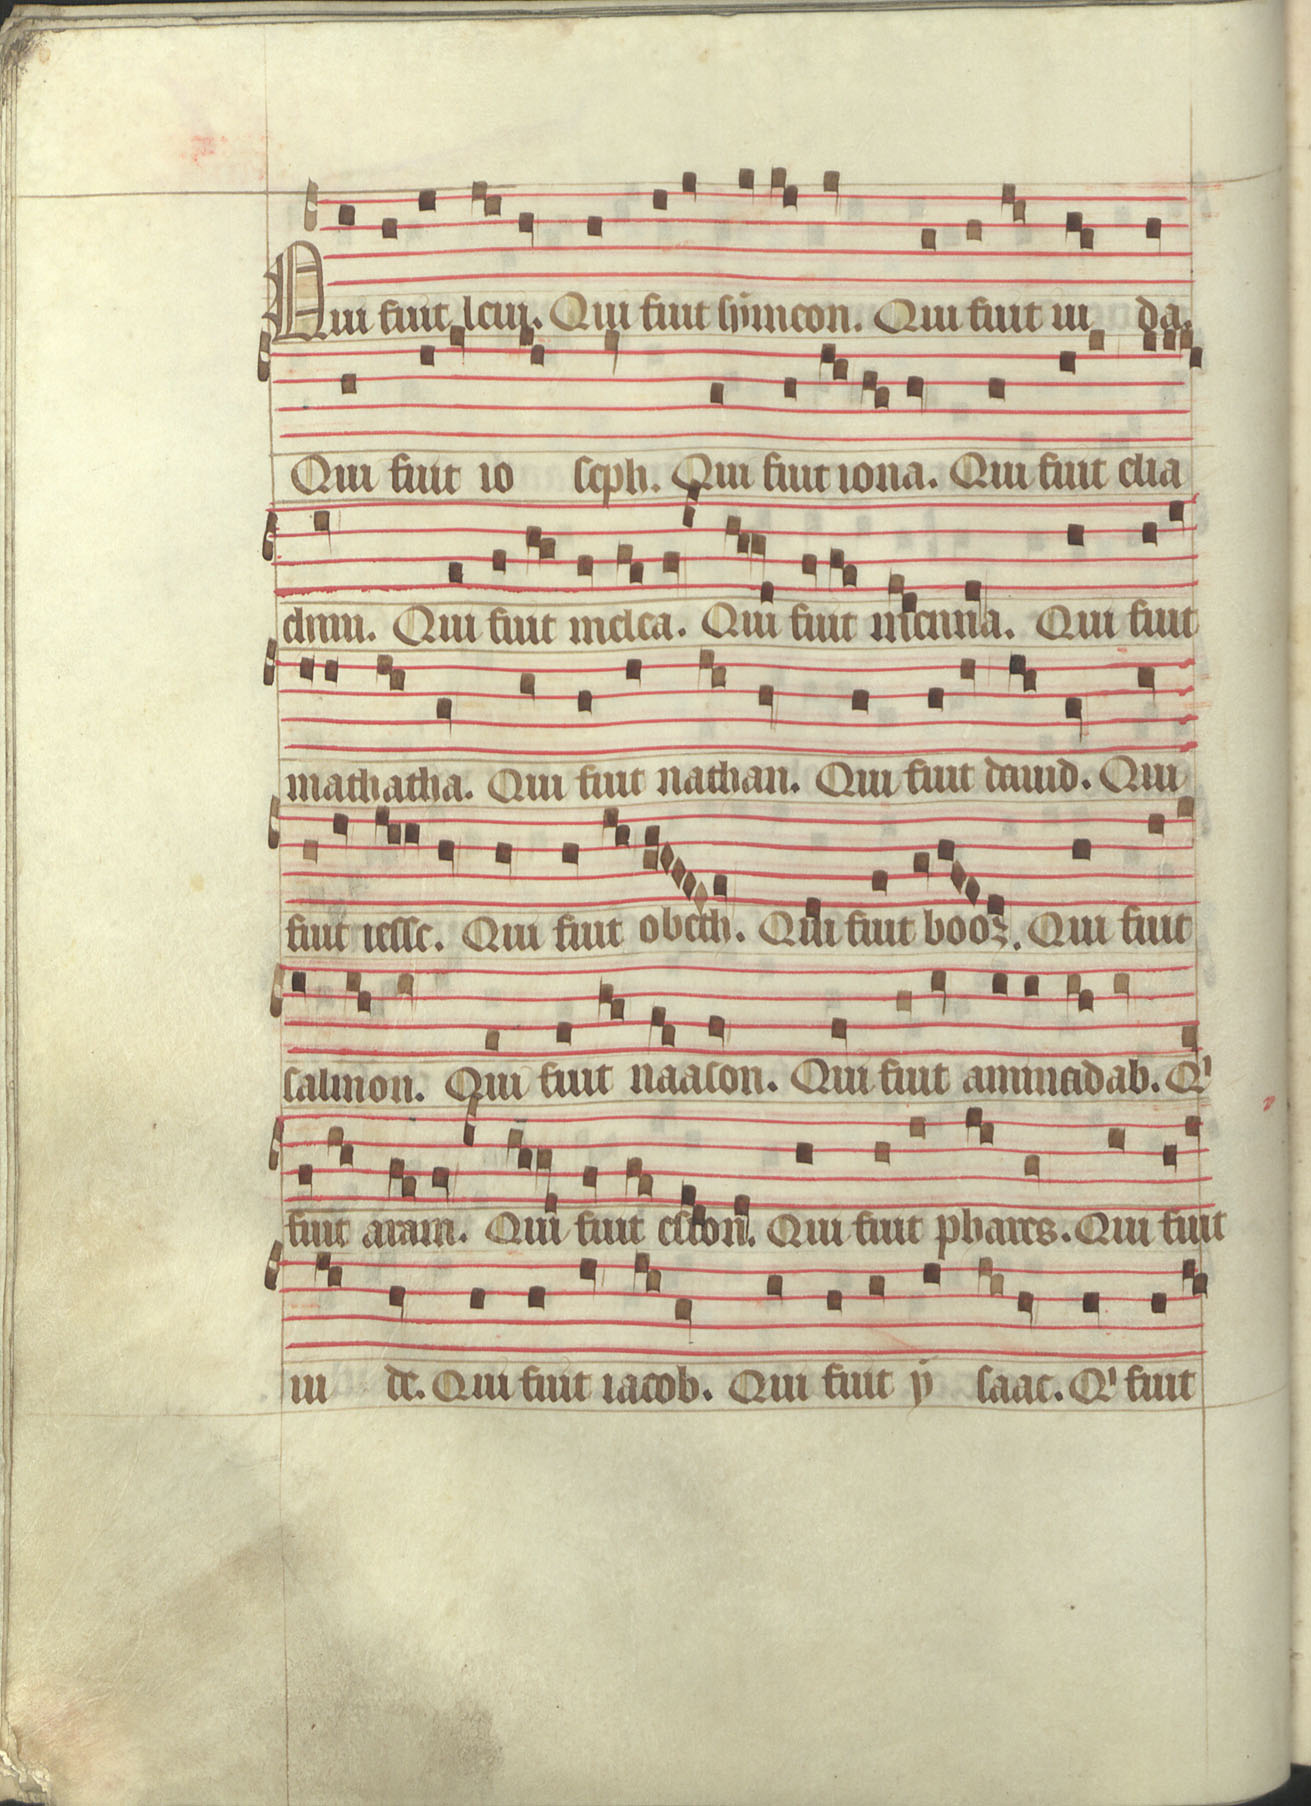 Qui fuit leui. Qui fuit sẏmeon. Qui fuit iu da.
Qui fuit io seph. Qui fuit iona. Qui fuit elia
chim. Qui fuit melca. Qui fuit menna. Qui fuit
mathatha. Qui fuit nathan. Qui fuit dauid. Qui
fuit iesse. Qui fuit obeth. Qui fuit booz. Qui fuit
salmon. Qui fuit naason. Qui fuit aminadab. Qⁱ
fuit aram. Qui fuit esron. Qui fuit phares. Qui fuit
iu de. Qui fuit iacob. Qui fuit ẏ saac. Qⁱ fuit